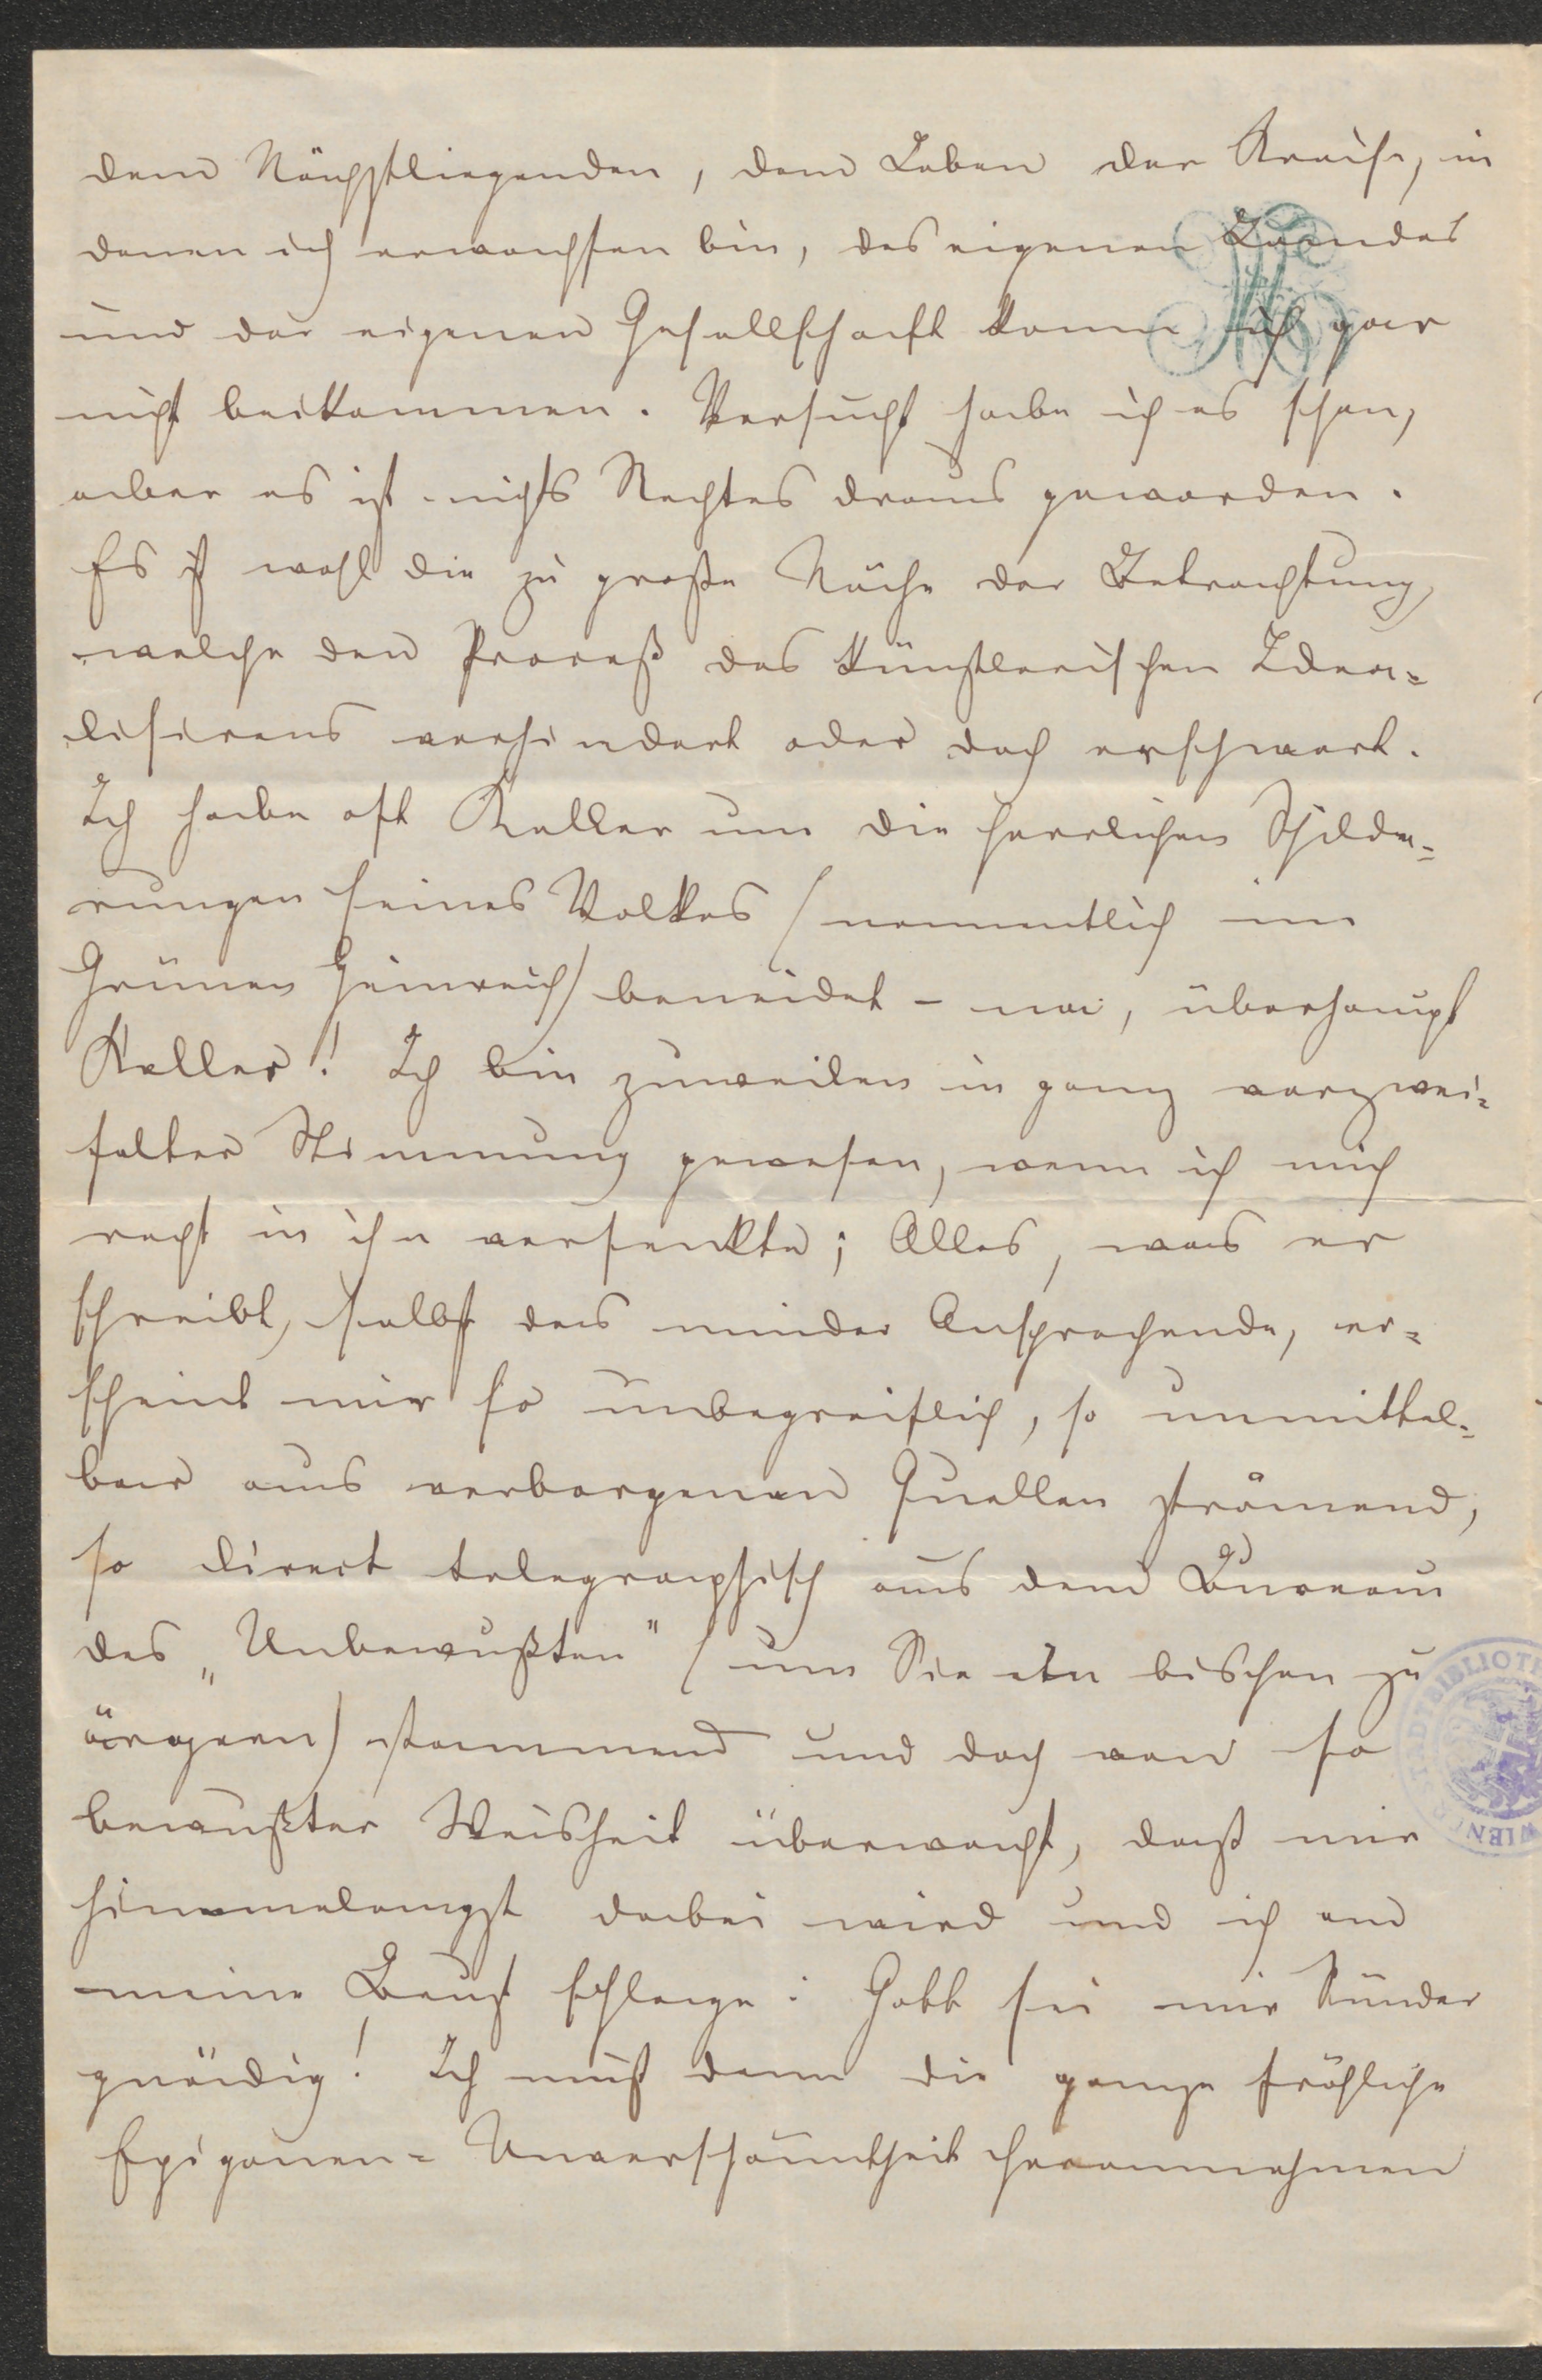 dem Nächstliegenden, dem Leben der Kreise, in
denen ich erwachsen bin, des eigenen Landes
und der eigenen Gesellschaft kann ich gar
nicht beikommen. Versucht habe ich es schon,
aber es ist nichts Rechtes draus geworden.
Es ist wohl die zu große Nähe der Betrachtung,
welche den Proceß des künstlerischen Idea-
lisirens verhindert oder doch erschwert.
Ich habe oft Keller um die herrlichen Schilde-
rungen seines Volkes (namentlich im
Grünen Heinrich) beneidet – na, überhaupt
Keller! Ich bin zuweilen in ganz verzwei-
felter Stimmung gewesen, wenn ich mich
recht in ihn versenkte; Alles, was er
schreibt, selbst das minder Ansprechende, er-
scheint mir so unbegreiflich, so unmittel-
bar aus verborgenen Quellen strömend,
so direct telegraphisch aus dem Bureau
des „Unbewußten" (um Sie ein bischen zu
ärgern) stammend und doch von so
bewußter Weisheit überwacht, daß mir
himmelangst dabei wird und ich an
meine Brust schlage: Gott sei mir Sünder
gnädig! Ich muß dann die ganze fröhliche
Epigonen-Unverschämtheit herannehmen